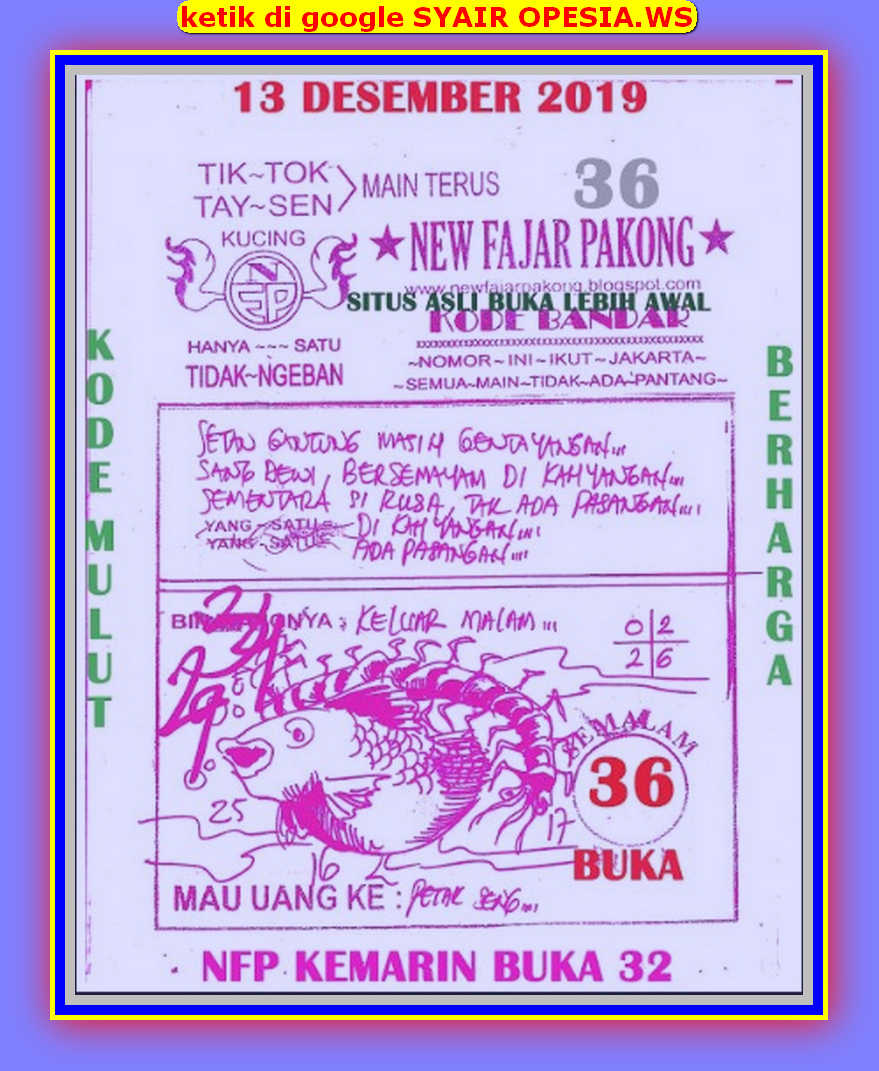 ketik di google SYAIR OPESIA.WS
13 DESEMBER 2019
TIK~TOK
TAY~SEN
MAIN TERUS
36
KUCING
NFP
★NEW FAJAR PAKONG★
www.newfajarpakong.blogspot.com
SITUS ASLI BUKA LEBIH AWAL
KODE BANDAR
HANYA ~~~ SATU
TIDAK~NGEBAN
~NOMOR~INI~IKUT~JAKARTA~
~SEMUA~MAIN~TIDAK~ADA~PANTANG~
KODE MULUT
BERHARGA
SETAN GANTUNG MASIH GENTAYANGAN...
SANG DEWI, BERSEMAYAM DI KAHYANGAN...
SEMENTARA SI RUSA, TAK ADA PASANGAN....
YANG~SATU DI KAHYANGAN....
YANG~SATU ADA PASANGAN...
KELUAR MALAM...
0 2
2 6
29
25
16
17
SEMALAM
36
BUKA
MAU UANG KE : PETAK SENG...
NFP KEMARIN BUKA 32